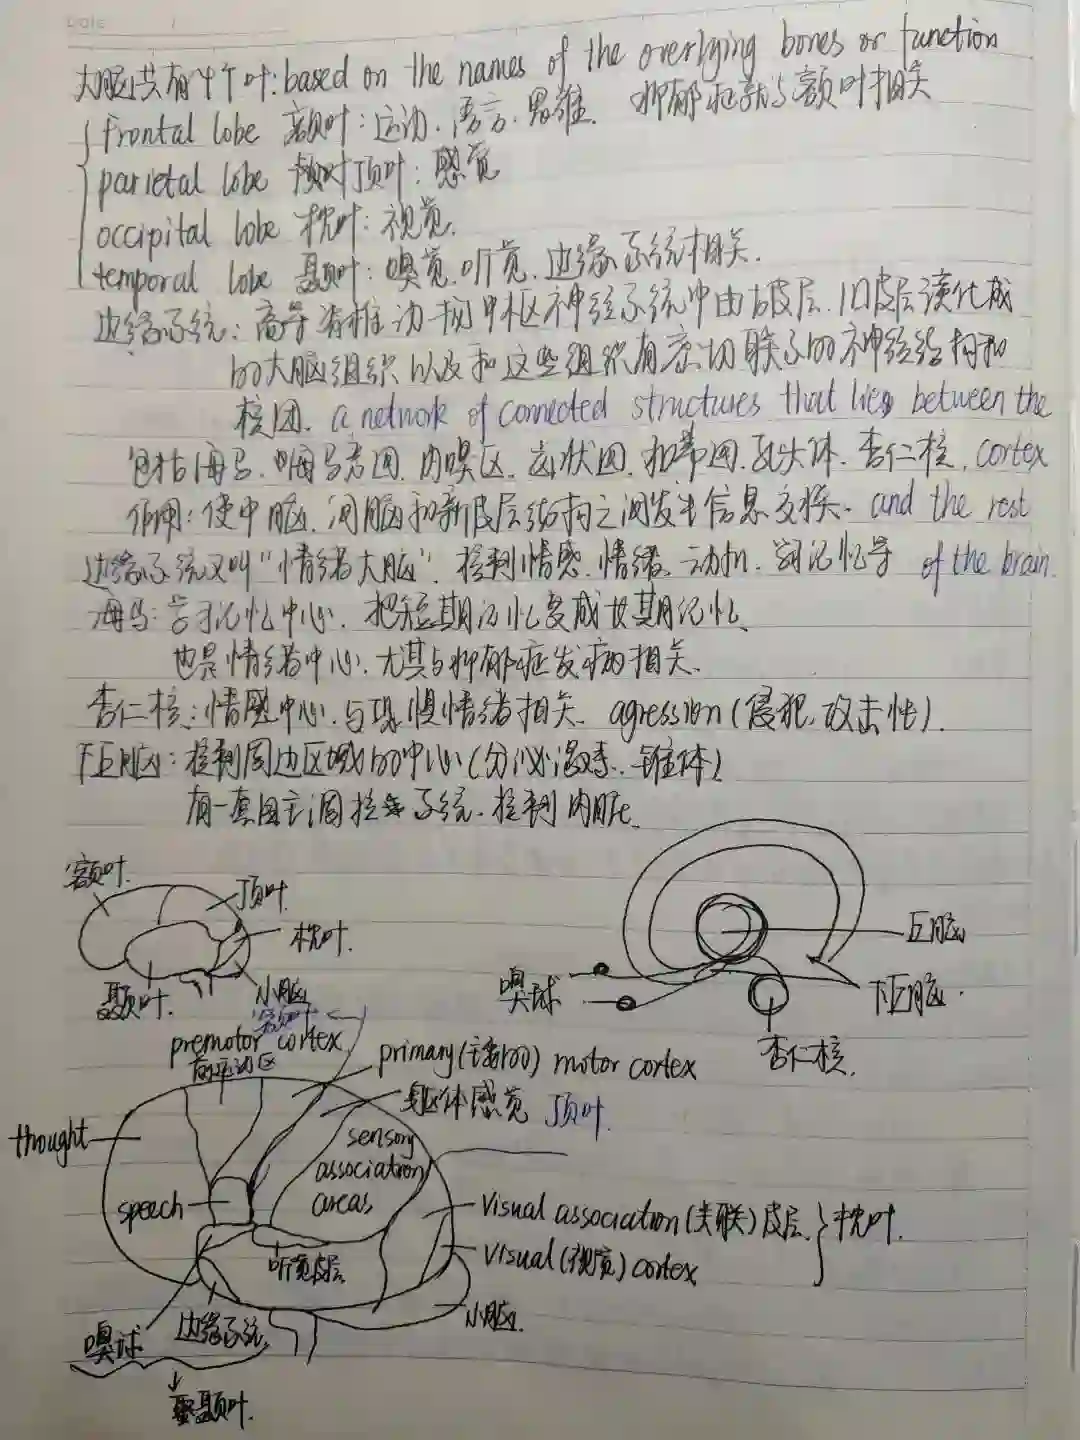 Date
大脑共有4个叶: based on the names of the overlying bones or function
frontal lobe 额叶: 运动、语言、思维. 抑郁症就与额叶相关
parietal lobe 顶叶: 感觉
occipital lobe 枕叶: 视觉.
temporal lobe 颞叶: 嗅觉、听觉、边缘系统相关.
边缘系统: 高等脊椎动物中枢神经系统中由古皮层、旧皮层演化成
的大脑组织以及和这些组织有密切联系的神经结构和
核团. a network of connected structures that lies between the
包括海马、海马旁回、内嗅区、齿状回、扣带回、乳头体、杏仁核. cortex
作用: 使中脑、间脑和新皮层结构之间发生信息交换. and the rest
边缘系统又叫“情绪大脑”. 控制情感、情绪、动机、记忆等 of the brain.
海马: 学习记忆中心. 把短期记忆变成长期记忆.
也是情绪中心. 尤其与抑郁症发病相关.
杏仁核: 情感中心. 与恐惧情绪相关. agression (侵犯, 攻击性).
下丘脑: 控制周边区域的中心 (分泌激素、锥体)
有一套自主调控系统. 控制内脏.
额叶.
顶叶.
枕叶.
颞叶.
小脑
嗅球
丘脑
下丘脑.
杏仁核.
额叶
premotor cortex
前运动区
primary (主要的) motor cortex
躯体感觉 顶叶.
thought
sensory
association
areas
speech
visual association (关联) 皮层.
枕叶.
听觉皮层
visual (视觉) cortex
小脑.
嗅球
边缘系统
颞叶.